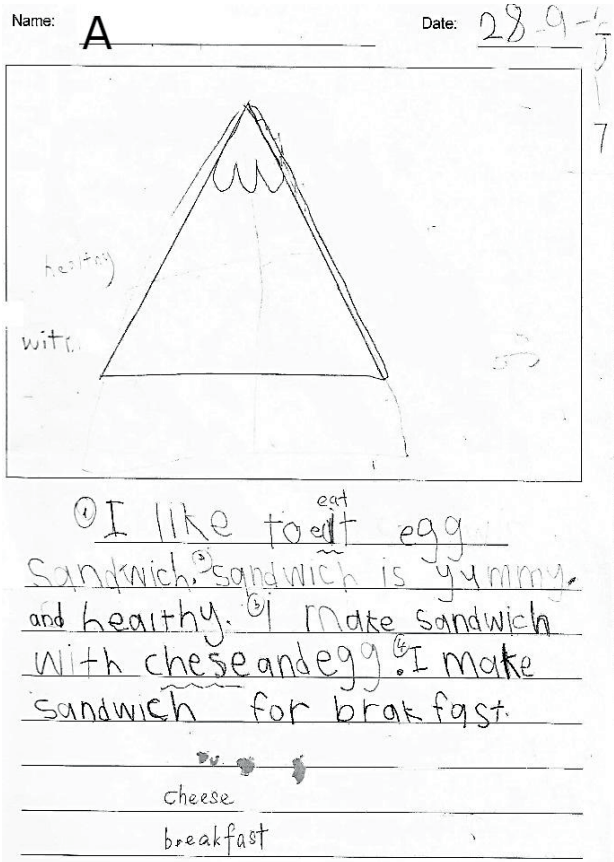 Name: A Date: 28-9-
7
healthy
with
eat
① I like to edt egg
Sandwich. ② sandwich is yummy.
and healthy. ③ I make sandwich
with cheseandegg. ④ I make
sandwich for brakfast.
cheese
breakfast